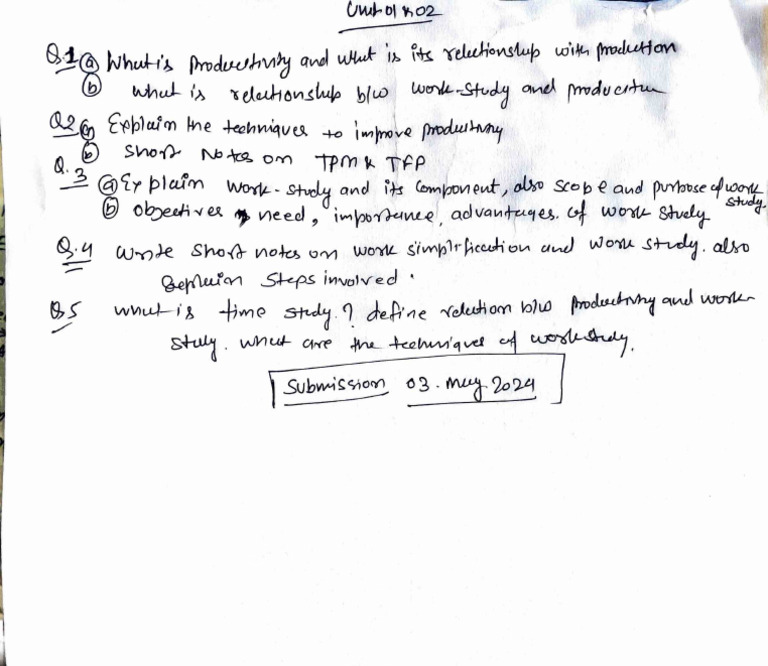 Unit 01 & 02
Q.1 (a) What is Productivity and what is its relectionship with production
(b) what is relectionship b/w work-study and production
Q2 (a) Explain the techniques to improve productivity
(b) Short Notes on TPM & TFP
Q.3 (a) Explain work-study and its component, also scope and purpose of work study.
(b) objectives, need, importance, advantages. of work study
Q.4 write short notes on work simplification and work study. also
explain steps involved.
Q5 what is time study? define relection b/w Productivity and work-
study. what are the techniques of workstudy.
Submission 03. may. 2024